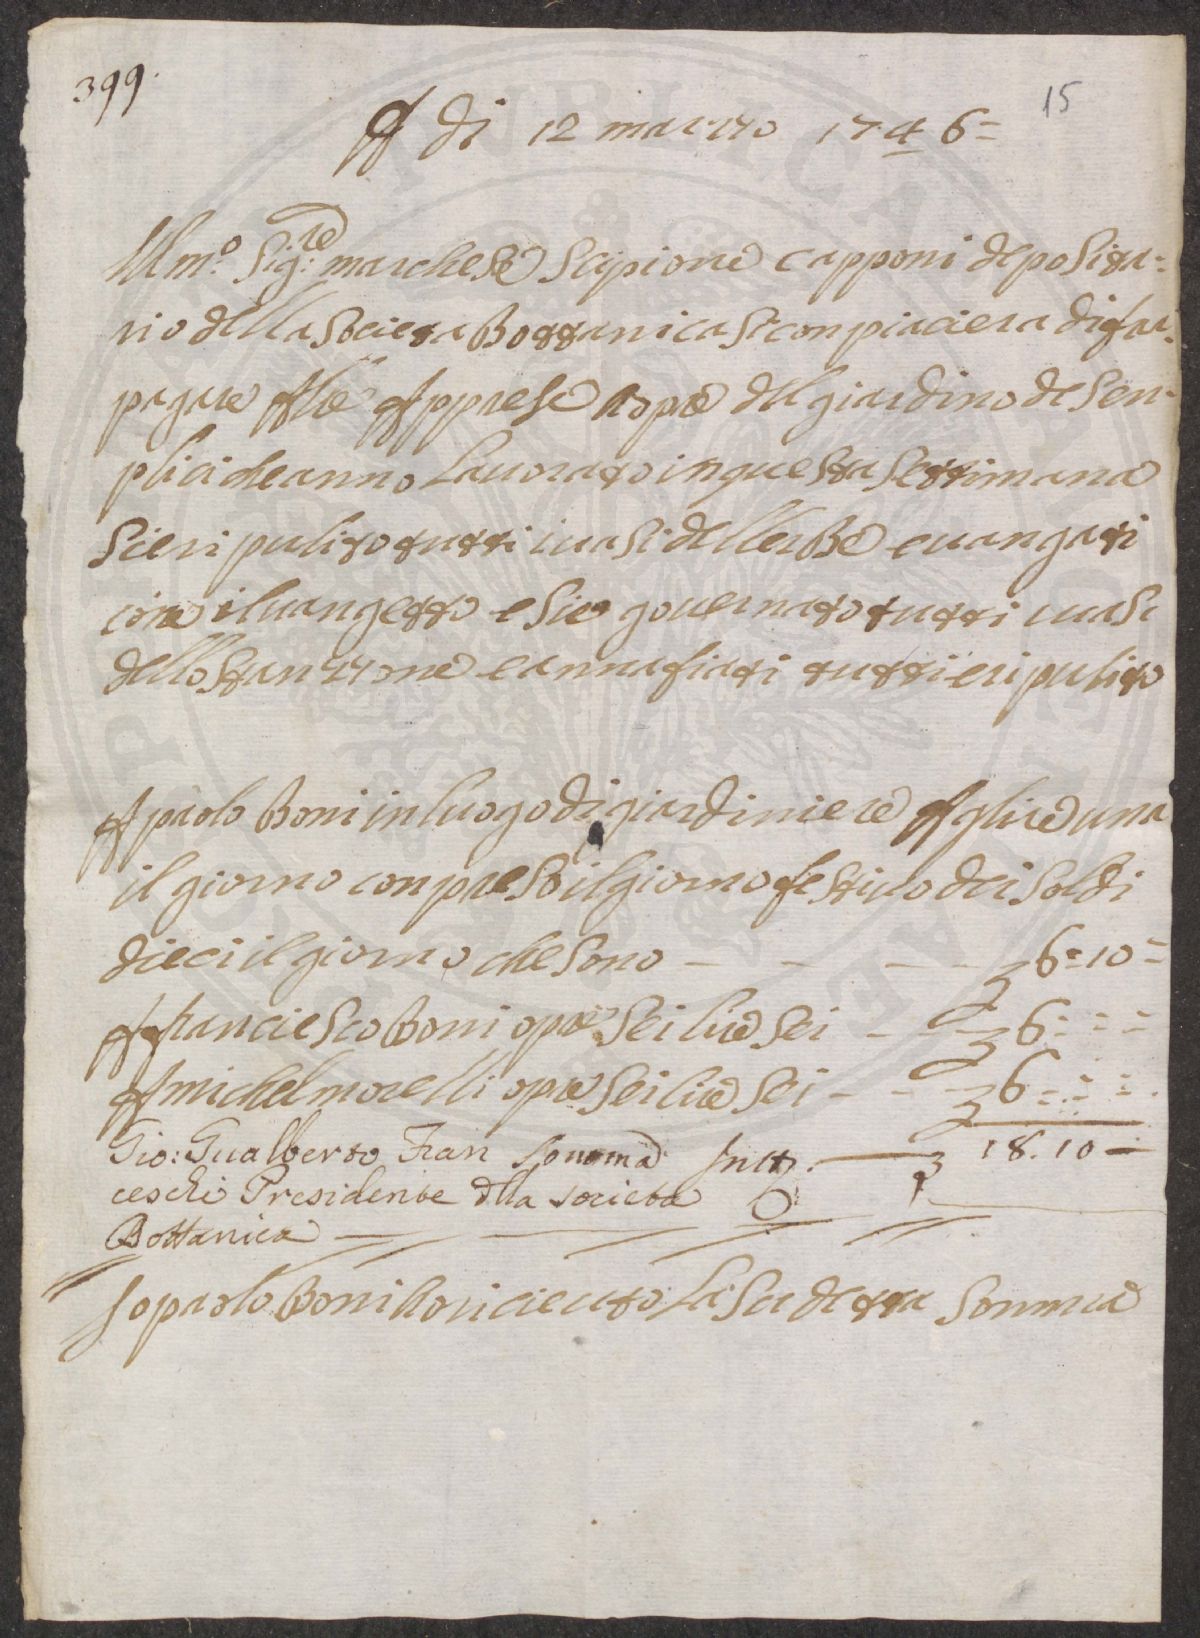 399.
15
A di 12 marzzo 1746=
Ill.mo Sig:re marchese Scipione capponi deposita=
rio della Società Bottanica Si conpiaciera di far=
pagare Alle Apprese Aopre del giardino de Sen=
plici che anno Lauorato in questa Settimana
Si e ripulito tutti i uasi dellerbe e uangati
cone il uangetto e Si e gouernato tutti i uasi
dello Stanzzone e annafiati tutti e ripulito
A paolo Boni in luogo di giardiniere A lire una
il giorno conpreso il giorno festiuo dei Soldi
dieci il giorno che Sono — — — 6=10=
A franciesco Boni opre Sei lire Sei — — 6= = =
A michel morelli opre Sei lire Sei — — 6= = =
Gio: Gualberto Fran Somma — 18.10 —
ceschi Presidente d'lla società
Bottanica —
Io paolo Boni ho riceuto La Su detta Somma